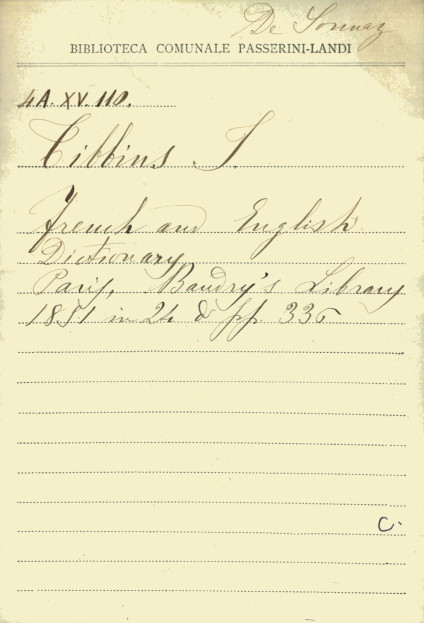 De Sonnaz
BIBLIOTECA COMUNALE PASSERINI-LANDI
4A. XV. 110.
Tibbins J.
French and English
Dictionary
Paris, Baudry's Library
1851 in 24 & pp. 335
C.